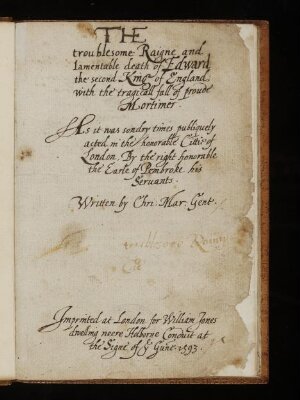 THE
troublesome Raigne and
lamentable death of Edward
the second King of England
with the tragicall fall of proude
Mortimer.
As it was sondry times publiquely
acted in the honorable Citie of
London. By the right honorable
the Earle of Pembroke his
Servants.
Written by Chri: Mar: Gent.
Imprinted at London for William Jones
dwelling neere Holborne Conduit at
the Signe of yᵉ Gunn. 1593.